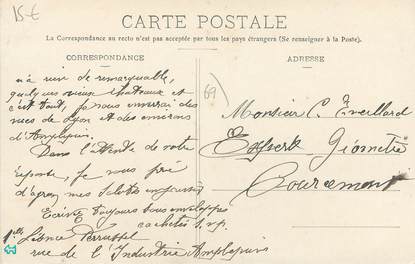 15€
CARTE POSTALE
La Correspondance au recto n'est pas acceptée par tous les pays étrangers (Se renseigner à la Poste).
CORRESPONDANCE
ADRESSE
n'a rien de remarquable,
quelques vieux chateaux et
c'est tout, je vous enverrai des
vues de Lyon et des environs
d'Amplepuis.
Dans l'attente de votre
réponse, je vous prie
d'agréer mes salutations
Ecrire toujours sous enveloppes
cachetés S.v.p.
Léonce
rue de l'Industrie Amplepuis
69
Monsieur C. Eveillard
Expert Géomètre
Courcemont